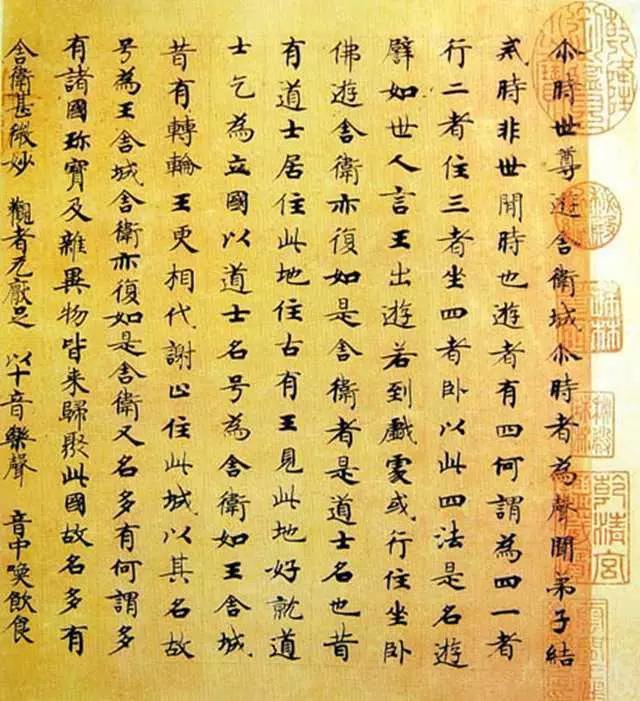 尒時世尊遊舍衛城尒時者為聲聞弟子結
戒時非世間時也遊者有四何謂為四一者
行二者住三者坐四者卧以此四法是名遊
譬如世人言王出遊若到戲處或行住坐卧
佛遊舍衛亦復如是舍衛者是道士名也昔
有道士居住此地住古有王見此地好就道
士乞為立國以道士名号為舍衛如王舍城
昔有轉輪王更相代謝止住此城以其名故
号為王舍城舍衛亦復如是舍衛又名多有何謂多
有諸國珎寶及雜異物皆来歸聚此國故名多有
舍衛甚微妙 觀者无厭足 以十音樂聲 音中喚飲食
秘殿
珠林
乾清宮